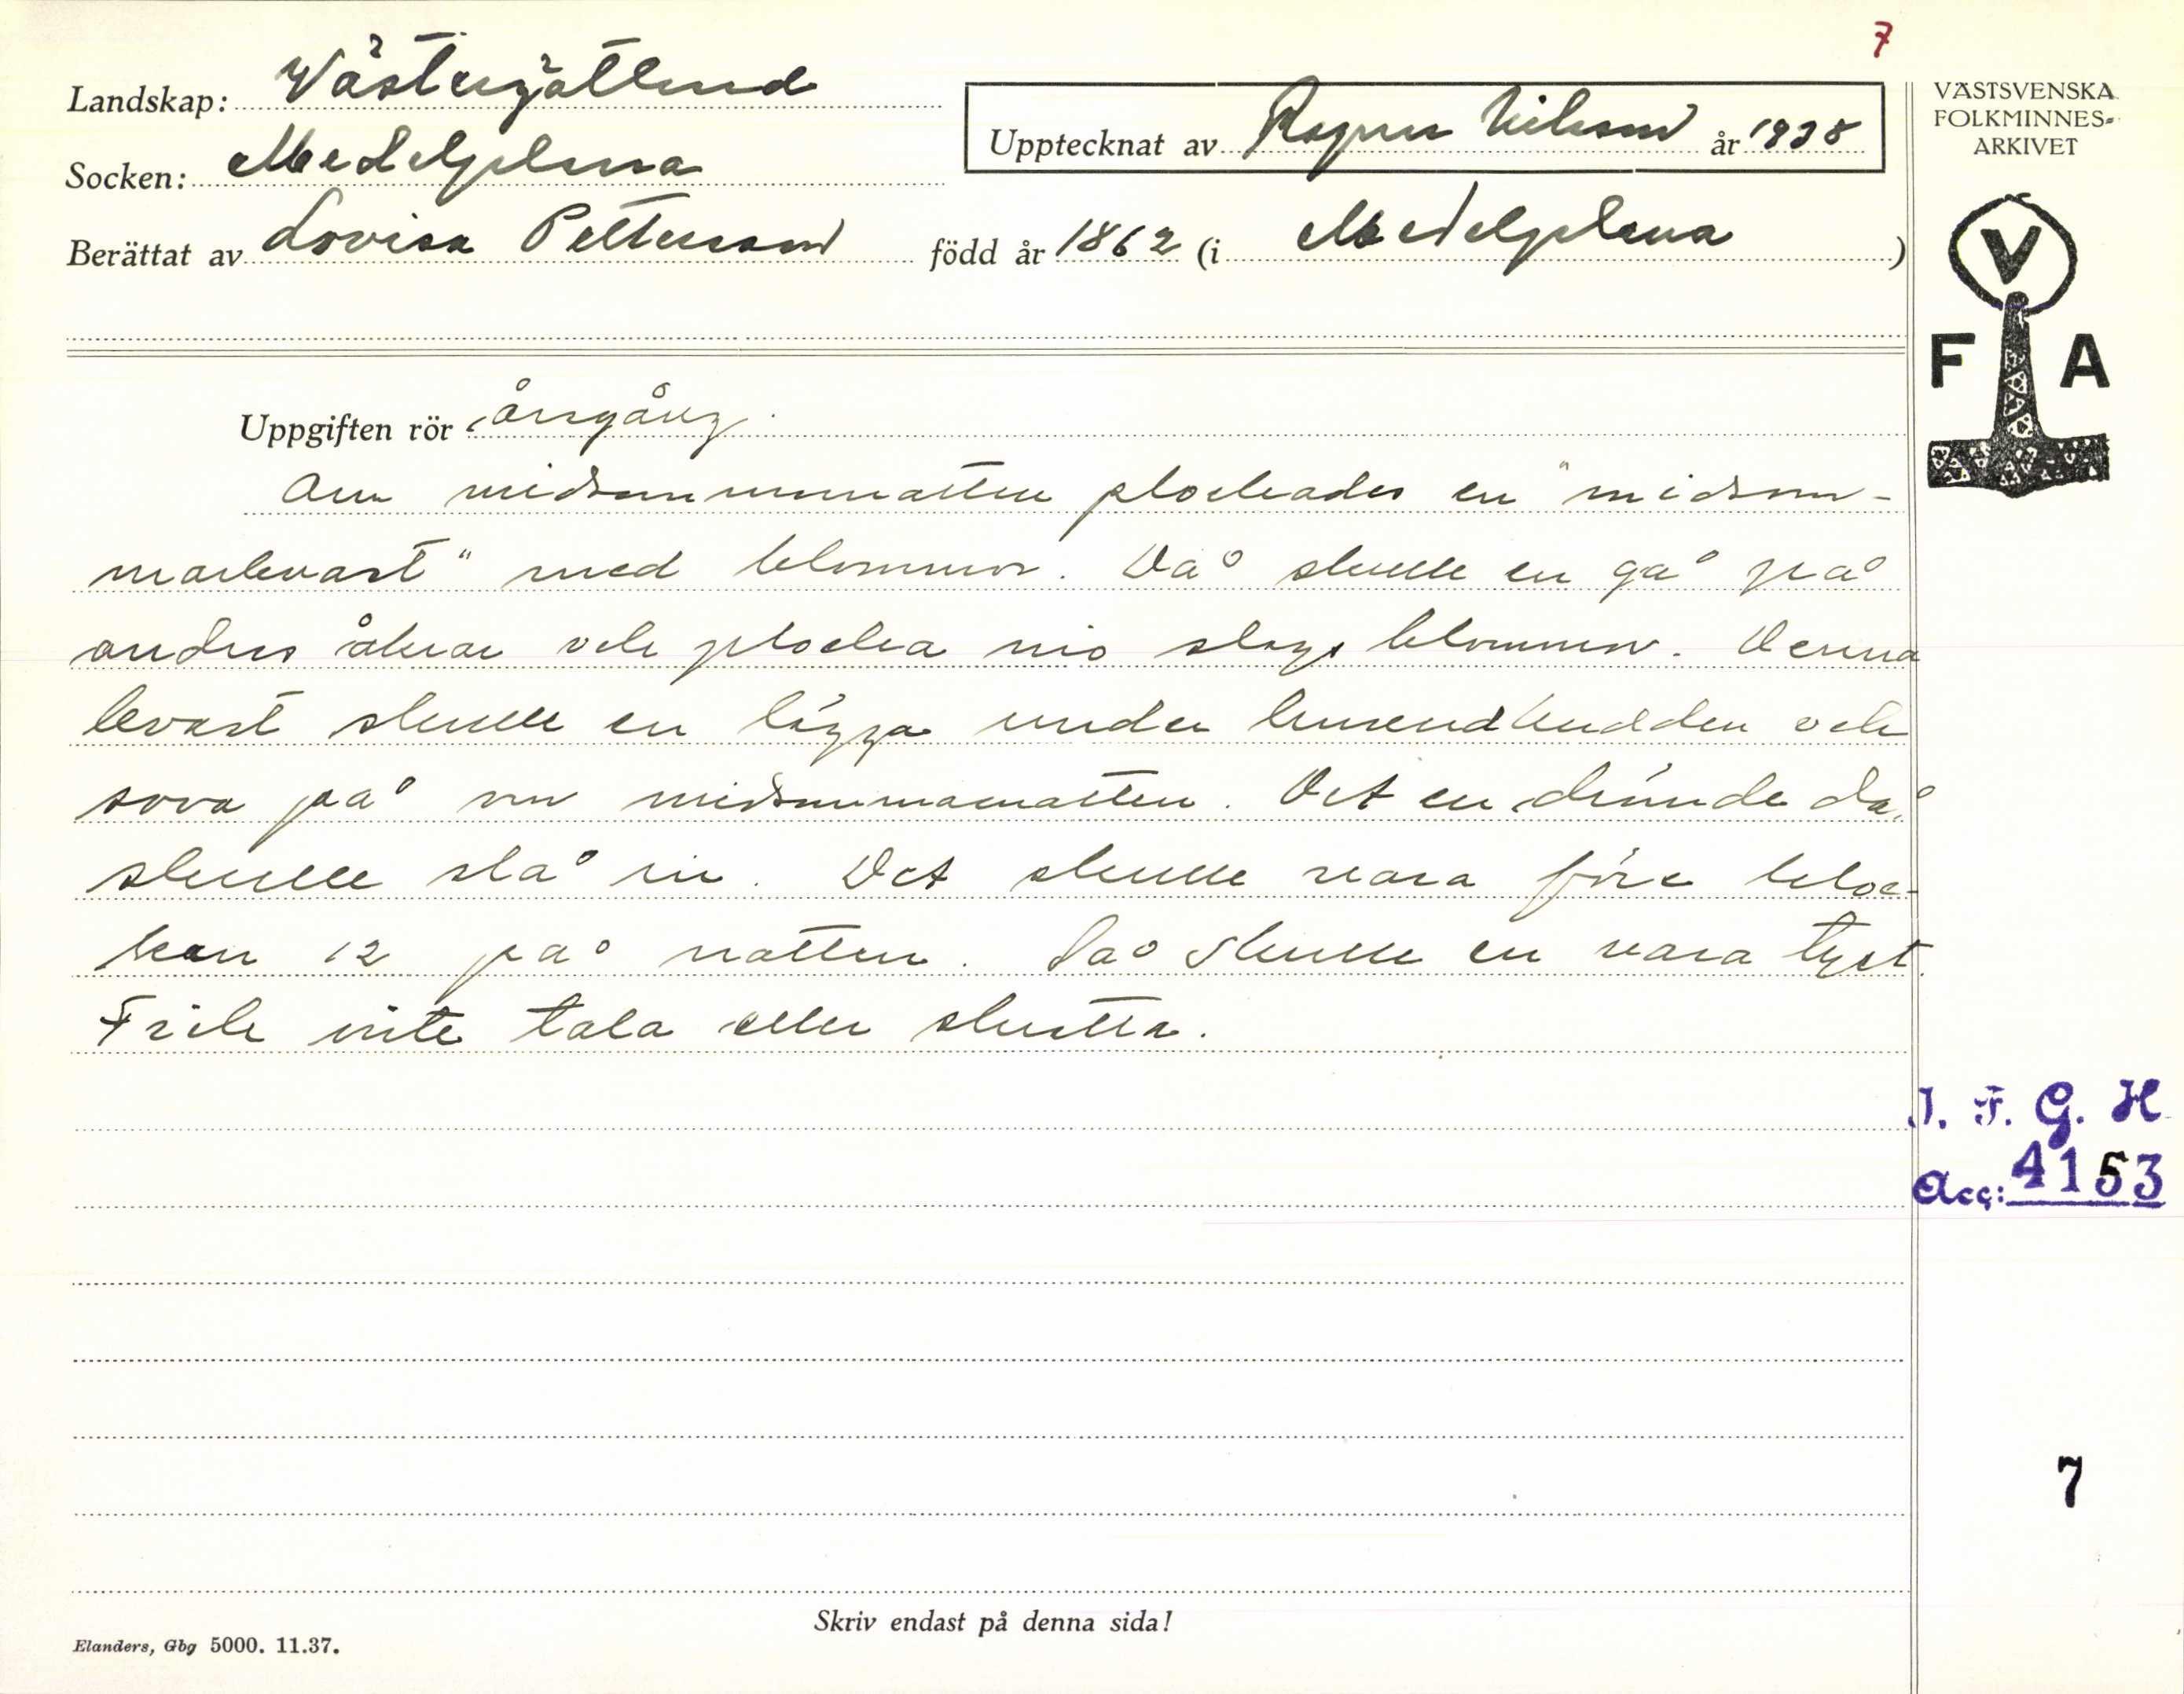 7
Landskap: Västergötland
Socken: Medelplana
Upptecknat av Ragnar Nilsson år 1938
Berättat av Lovisa Pettersson född år 1862 (i Medelplana)
VÄSTSVENSKA
FOLKMINNES=
ARKIVET
V
F A
Uppgiften rör årsgång.
Om midsommarnatten plockades en "midsom-
markvast" med blommor. Då skulle en gå på
andras åkrar och plocka nio slags blommor. Denna
kvast skulle en lägga under huvudkudden och
sova på om midsommarnatten. Det en drömde då,
skulle slå in. Det skulle vara före kloc-
kan 12 på natten. Så skulle en vara tyst.
Fick inte tala eller skratta.
I. F. G. H
Acc: 4153
7
Skriv endast på denna sida!
Elanders, Gbg 5000. 11.37.